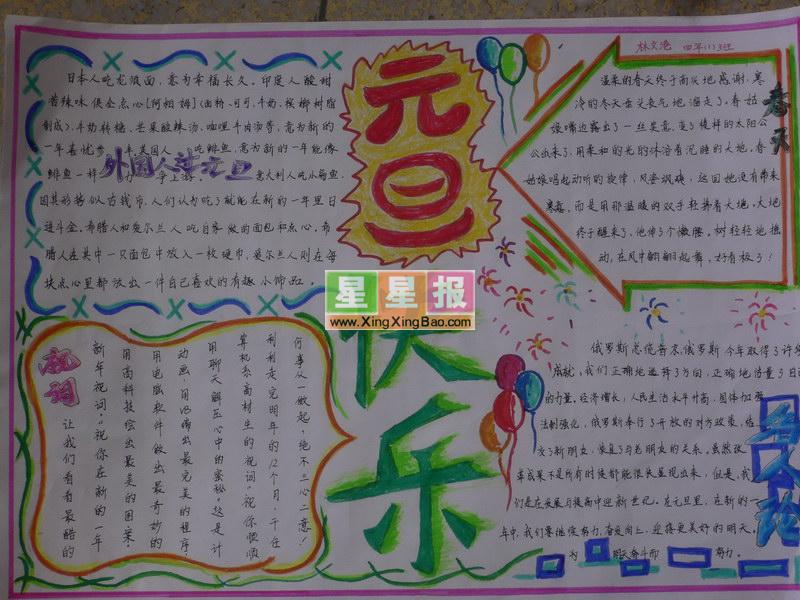 林文港 四年(1)3班
元旦
快乐
外国人谈元旦
日本人吃龙须面,意为幸福长久。印度人酸甜
苦辣味俱全点心[何姆姆](面粉、可可、牛奶、槟榔树脂
制成)、牛奶转糖、芒果酸辣汤、咖哩牛肉汤等,意为新的
一年喜忧参半。美国人吃鲱鱼,意为新的一年能像
鲱鱼一样 力争上游。意大利人吃小扁鱼,
因其形状似古钱币,人们认为吃了就能在新的一年里日
进斗金。希腊人和爱尔兰人吃自家做的面包和点心。希
腊人在其中一只面包中放入一枚硬币,爱尔兰人则在每
块点心里都放出一件自己喜欢的有趣小饰品。
春天
温柔的春天终于南灭地感谢,寒
冷的冬天垂头丧气地溜走了。春姑
娘嘴边露出了一丝笑意,变了模样的太阳公
公出来了,用柔和的光的沐浴着沉睡的大地。春
姑娘唱起动听的旋律,风姿飒爽,这回她没有带来
寒霜,而是用那温暖的双手轻拂着大地。大地
终于醒来了,他伸了个懒腰。树轻轻地摇
动,在风中翩翩起舞,好看极了!
星星报
www.XingXingBao.com
祝词
让我们看看最酷的
新年祝词:“祝你在新的一年
用高科技绘出最美的图案,
用电脑软件做出最奇妙的
动画,用VB编出最完美的程序,
用聊天解区心中的 秘。”这是计
算机系高材生的祝词:“祝你顺顺
利利走完明年的12个月,千任
何事从一做起,绝不三心二意!”
名人论
俄罗斯总统普京:俄罗斯今年取得了许多
成就,我们正确地选择了方向,正确地估量了自己
的力量。经济增长,人民生活水平升高,国体加强,
法制强化,俄罗斯奉行了开放的对方政策,结
交了新朋友,恢复了与老朋友的关系。虽然改
革成果不是所有时候都能很快显现出来,但是,我
们是在发展与提高中迎新世纪。在元旦里,在新的一
年中,我们要继续努力,奋发向上,迎接更美好的明天。
为 明天奋斗而 努力。